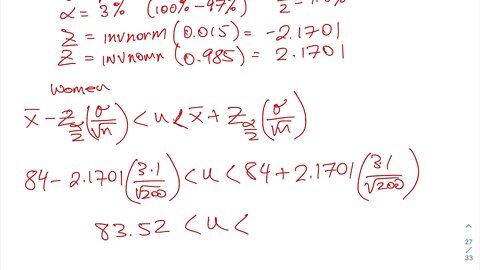 α = 3% (100% - 97%) 
Z = invnorm (0.015) = -2.1701
Z = invnomn (0.985) = 2.1701
Women
x̄ - Z α/2 (σ/√n) < u < x̄ + Z α/2 (σ/√n)
84 - 2.1701 (3.1/√200) < u < 84 + 2.1701 (3.1/√200)
83.52 < u <
27
33